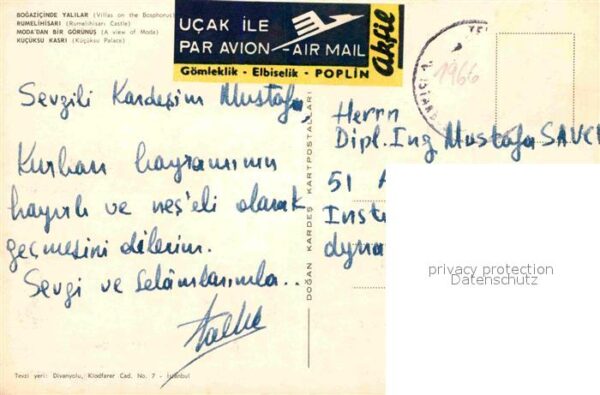 BOĞAZİÇİNDE YALILAR (Villas on the Bosphorus)
RUMELİHİSARI (Rumelihisarı Castle)
MODA'DAN BİR GÖRÜNÜŞ (A view of Moda)
KÜÇÜKSU KASRI (Küçüksu Palace)
UÇAK İLE
PAR AVION - AIR MAIL
Gömleklik - Elbiselik - POPLİN
Akfil
1966
Sevgili Kardeşim Mustafa,
Kurban bayramının
hayırlı ve neş'eli olarak
geçmesini dilerim.
Sevgi ve Selâmlarımla..
DOĞAN KARDEŞ KARTPOSTALLARI
Herrn
Dipl. Ing Mustafa SAVCI
51 A
Inst
dyna
privacy protection
Datenschutz
Tevzi yeri: Divanyolu, Klodfarer Cad. No. 7 - İstanbul